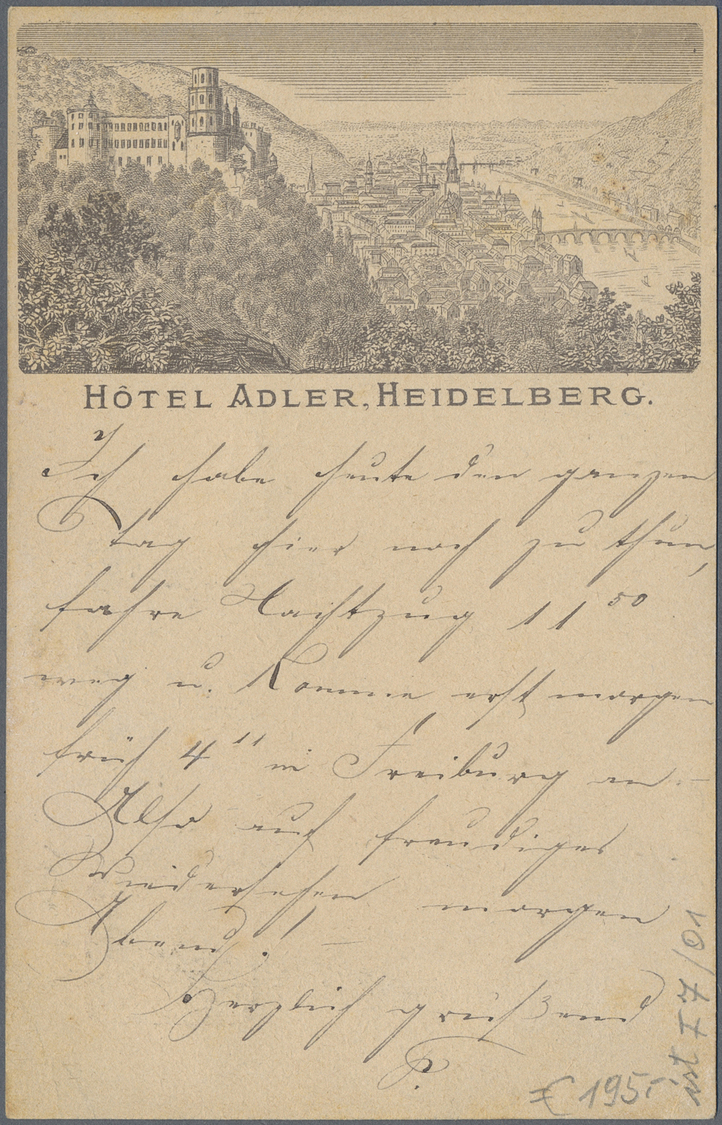 HÔTEL ADLER, HEIDELBERG.
Ich habe heute den ganzen
Tag hier noch zu thun,
fahre Nachtzug 11 50
weg u. komme erst morgen
früh 4 11 in Freiburg an –
Also auf freudiges
Wiedersehen morgen
Abend! –
Herzlich grüßend
P.
€ 195.-
ist I 7/01